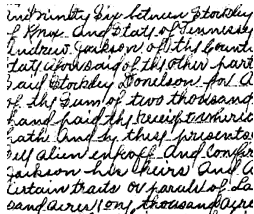 and ninety Six between Stockley
of Knox And State of Tennessey
Andrew Jackson of the Count
State aforesaid of the other part
Said Stockley Donelson for A
of the Sum of two thousand
hand paid the receipt where
hath And by these presents
Sell alien enfeoff And Confir
Jackson his heirs And A
Certain tracts or parcels of La
Sand Acres (one thousand Acre